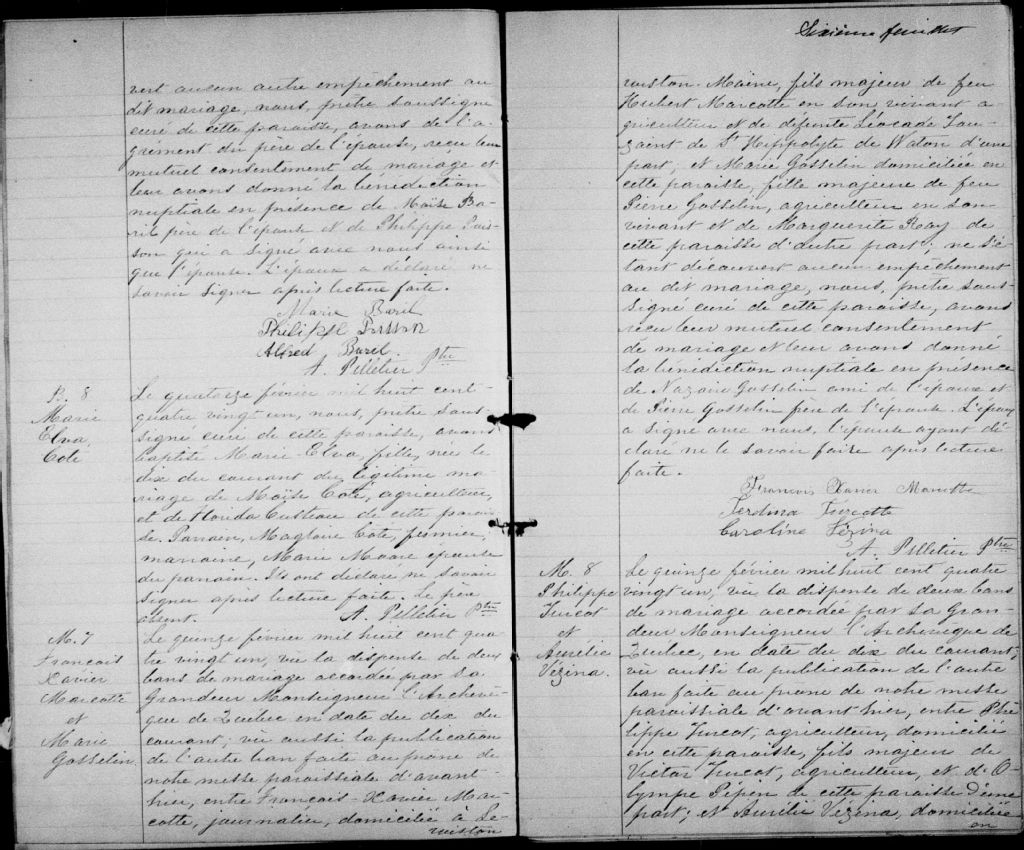 vert aucun autre empêchement au
dit mariage, nous, prêtre soussigné
curé de cette paroisse, avons de l'a-
grément du père de l'épouse, recu leur
mutuel consentement de mariage et
leur avons donné la bénédiction
nuptiale en présence de Moïse Ba-
ril père de l'épouse et de Philippe
qui a signé avec nous ainsi
que l'épouse. L'époux a déclaré ne
savoir signer après lecture faite.
Marie Baril
Philippe
Alfred Baril.
A. Pelletier Ptre
B. 8
Marie
Elva
Coté
Le quatorze février mil huit cent
quatre vingt un, nous, prêtre sous-
signé curé de cette paroisse, avons
baptisé Marie-Elva, fille, née le
dix du courant du légitime ma-
riage de Moïse Coté, agriculteur,
et de Florida Custeau de cette parois-
se. Parrain, Magloire Coté, fermier,
marraine, Marie Moore épouse
du parrain. Ils ont déclaré ne savoir
signer après lecture faite. Le père
absent.
A. Pelletier Ptre
M. 7
Francois
Xavier
Marcotte
et
Marie
Gosselin
Le quinze février mil huit cent qua-
tre vingt un, vu la dispense de deux
bans de mariage accordée par Sa
Grandeur Monseigneur l'Archevê-
que de Québec en date du dix du
courant; vu aussi la publication
de l'autre ban faite au prône de
notre messe paroissiale d'avant-
hier, entre Francois-Xavier Mar-
cotte, journalier, domicilié à Le-
wiston
Sixième feuillet
wiston. Maine, fils majeur de feu
Hubert Marcotte en son vivant a-
griculteur et de défunte Léocade Tou-
zaint de St Hippolyte de Woton d'une
part, et Marie Gosselin domiciliée en
cette paroisse, fille majeure de feu
Pierre Gosselin, agriculteur en son
vivant et de Marguerite Roy de
cette paroisse d'autre part; ne s'é-
tant découvert aucun empêchement
au dit mariage, nous, prêtre sous-
signé curé de cette paroisse, avons
recu leur mutuel consentement
de mariage et leur avons donné
la bénédiction nuptiale en présence
de Nazaire Gosselin ami de l'époux et
de Pierre Gosselin père de l'épouse. L'époux
a signé avec nous, l'épouse ayant dé-
claré ne le savoir faire après lecture
faite.
Francois Xavier Marcotte
Turcotte
Caroline Vézina
A. Pelletier Ptre
M. 8
Philippe
Turcot
et
Aurélie
Vézina.
Le quinze février mil huit cent quatre
vingt un, vu la dispense de deux bans
de mariage accordée par Sa Gran-
deur Monseigneur l'Archevêque de
Québec, en date du dix du courant;
vu aussi la publication de l'autre
ban faite au prone de notre messe
paroissiale d'avant hier, entre Phi-
lippe Turcot, agriculteur, domicilié
en cette paroisse, fils majeur de
Victor Turcot, agriculteur, et d'O-
lympe Pépin de cette paroisse d'une
part; et Aurélie Vézina, domiciliée
en